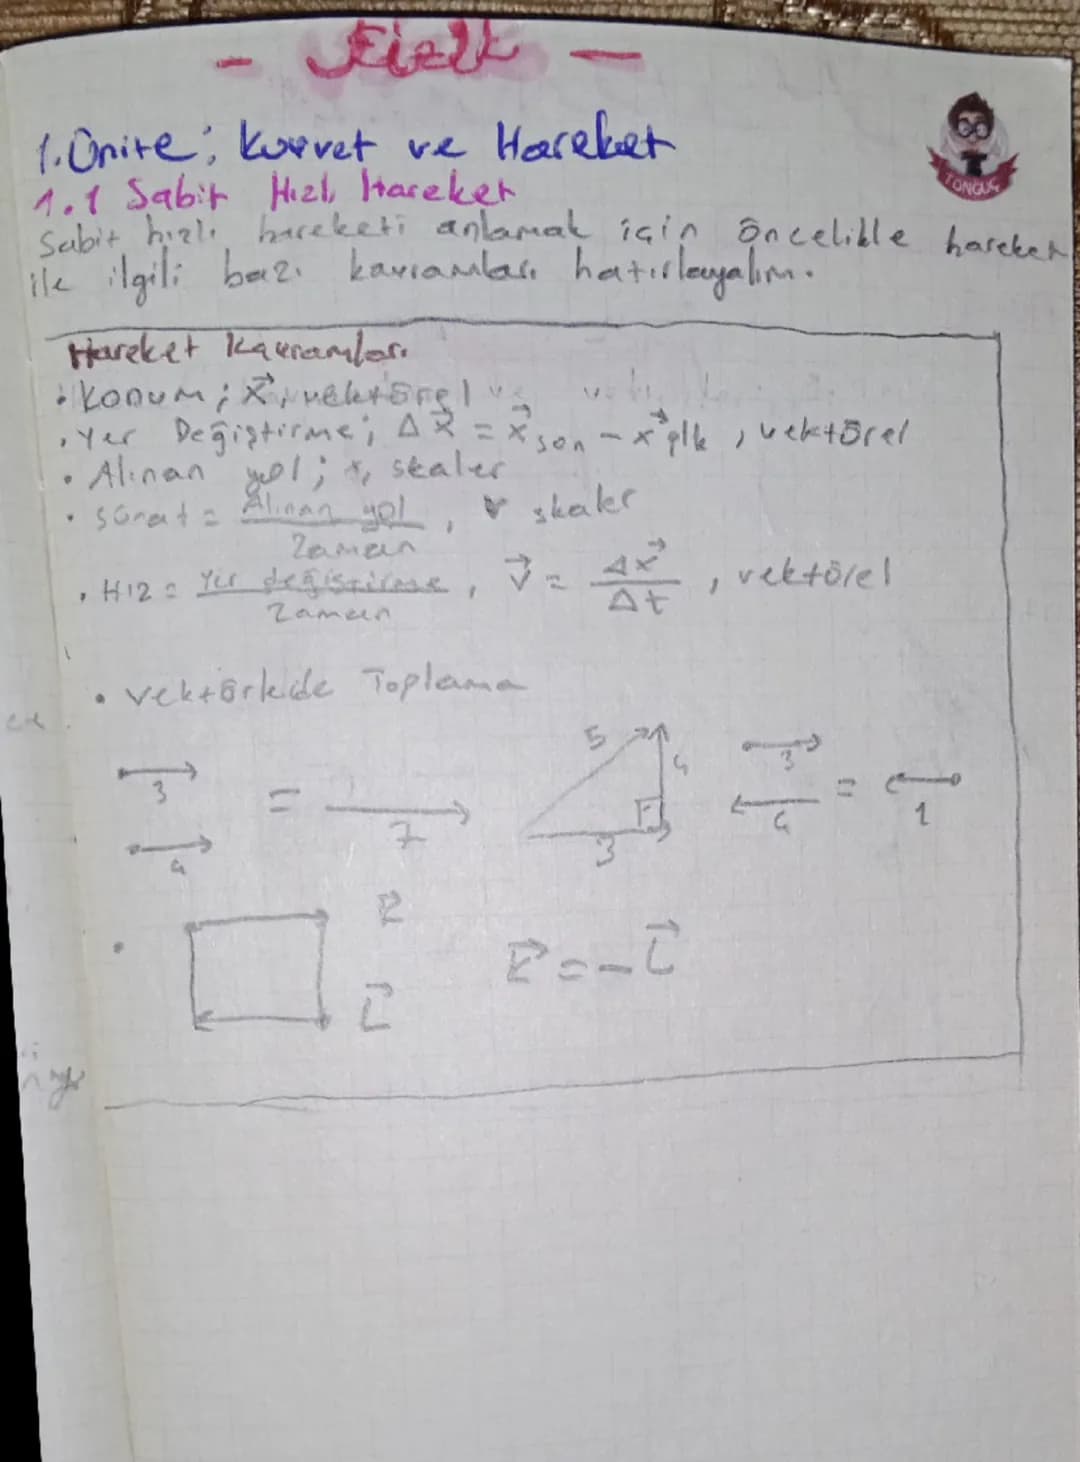 - Fizik -
1.Ünite; Kuvvet ve Hareket
TONGUÇ
1.1 Sabit Hızlı Hareket
Sabit hızlı hareketi anlamak için öncelikle hareket
ile ilgili bazı kavramları hatırlayalım.
Hareket Kavramları
• Konum; x⃗, vektörel
• Yer Değiştirme; Δx⃗ = x⃗son - x⃗ilk, vektörel
• Alınan yol; x, skaler
• Sürat = Alınan yol / Zaman, v skaler
• Hız = Yer değiştirme / Zaman, v⃗ = Δx⃗ / Δt, vektörel
• Vektörlerde Toplama
3
4
= 7
5 4 3
3
4
= 1
• K⃗
L⃗
K⃗ = -L⃗